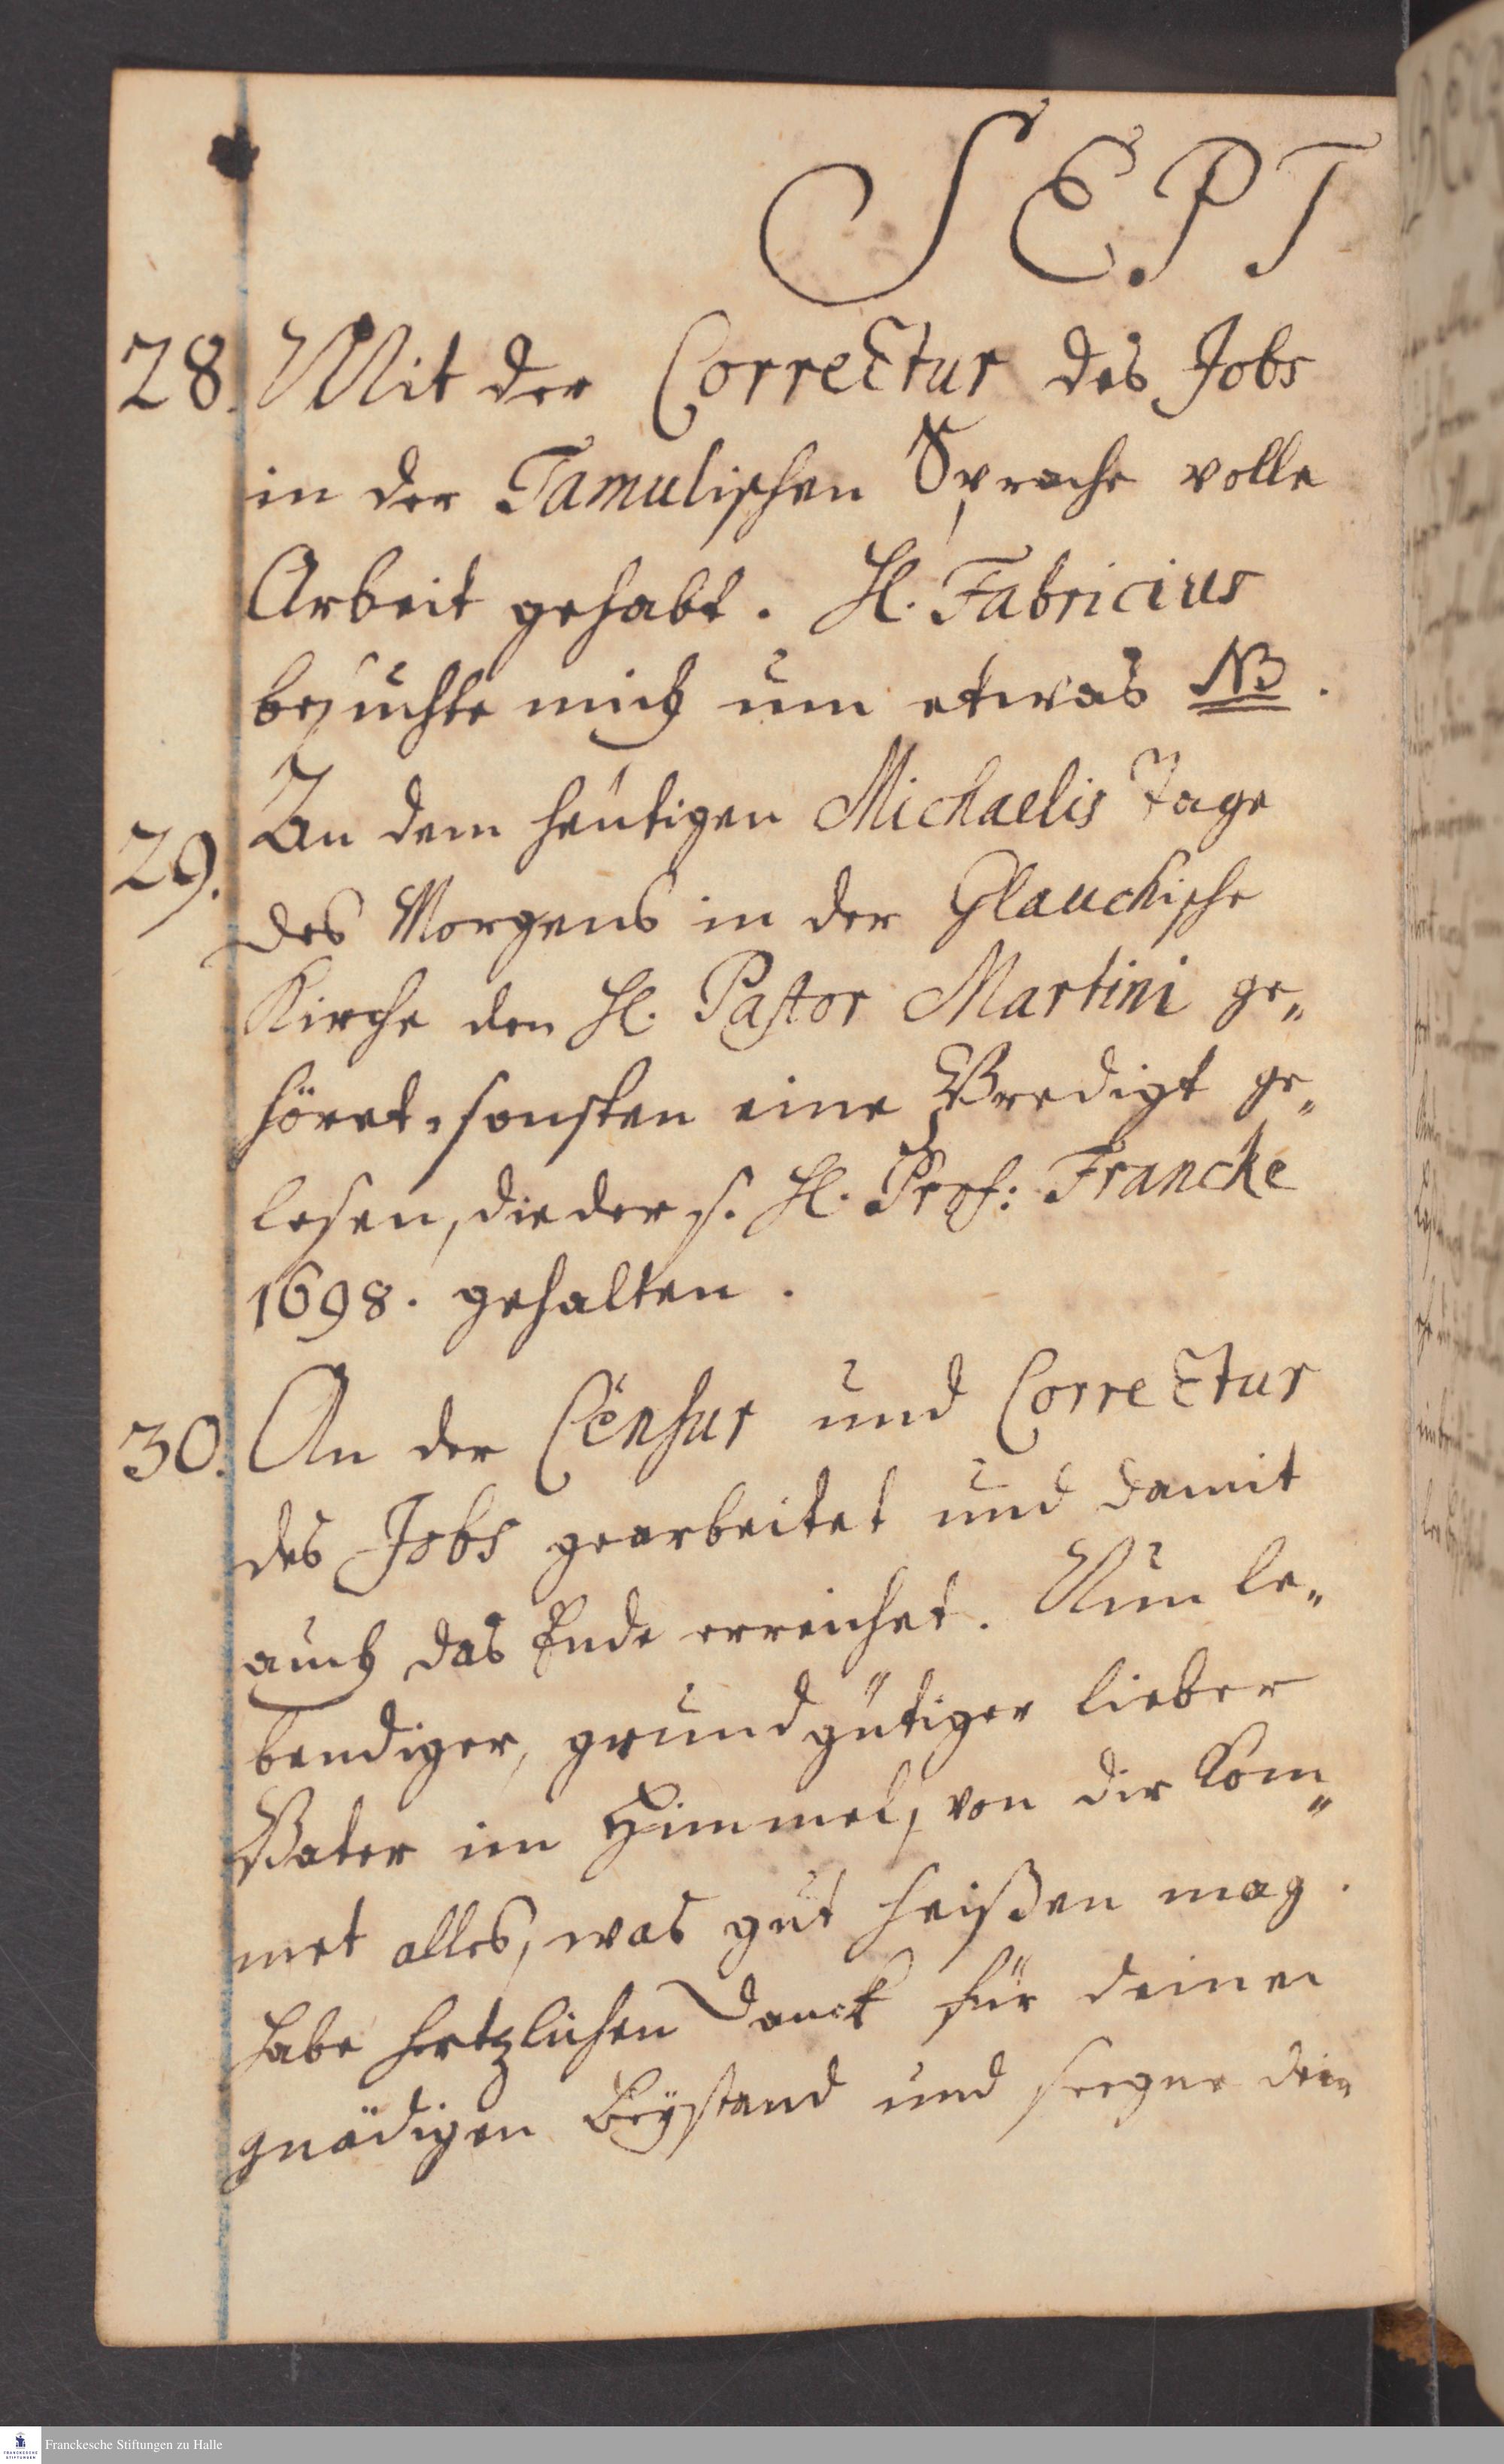 SEPT
28. Mit der Correctur des Jobs
in der Tamulischen Sprache volle
Arbeit gehabt. H. Fabricius
besuchte mich um etwas NB.
29. An dem heutigen Michaelis Tage
des Morgens in der Glauchische
Kirche den H. Pastor Martini ge„
höret, sonsten eine Predigt ge„
lesen, die der s. H. Prof: Francke
1698. gehalten.
30. An der Censur und Correctur
des Jobs gearbeitet und damit
auch das Ende erreichet. Nun le„
bendiger, grundgütiger lieber
Vater im Himmel, von dir kom„
met alles, was gut heißen mag.
habe hertzlichen Danck für deinen
gnädigen Beystand und seegne dei„
Franckesche Stiftungen zu Halle
FRANCKESCHE
STIFTUNGEN